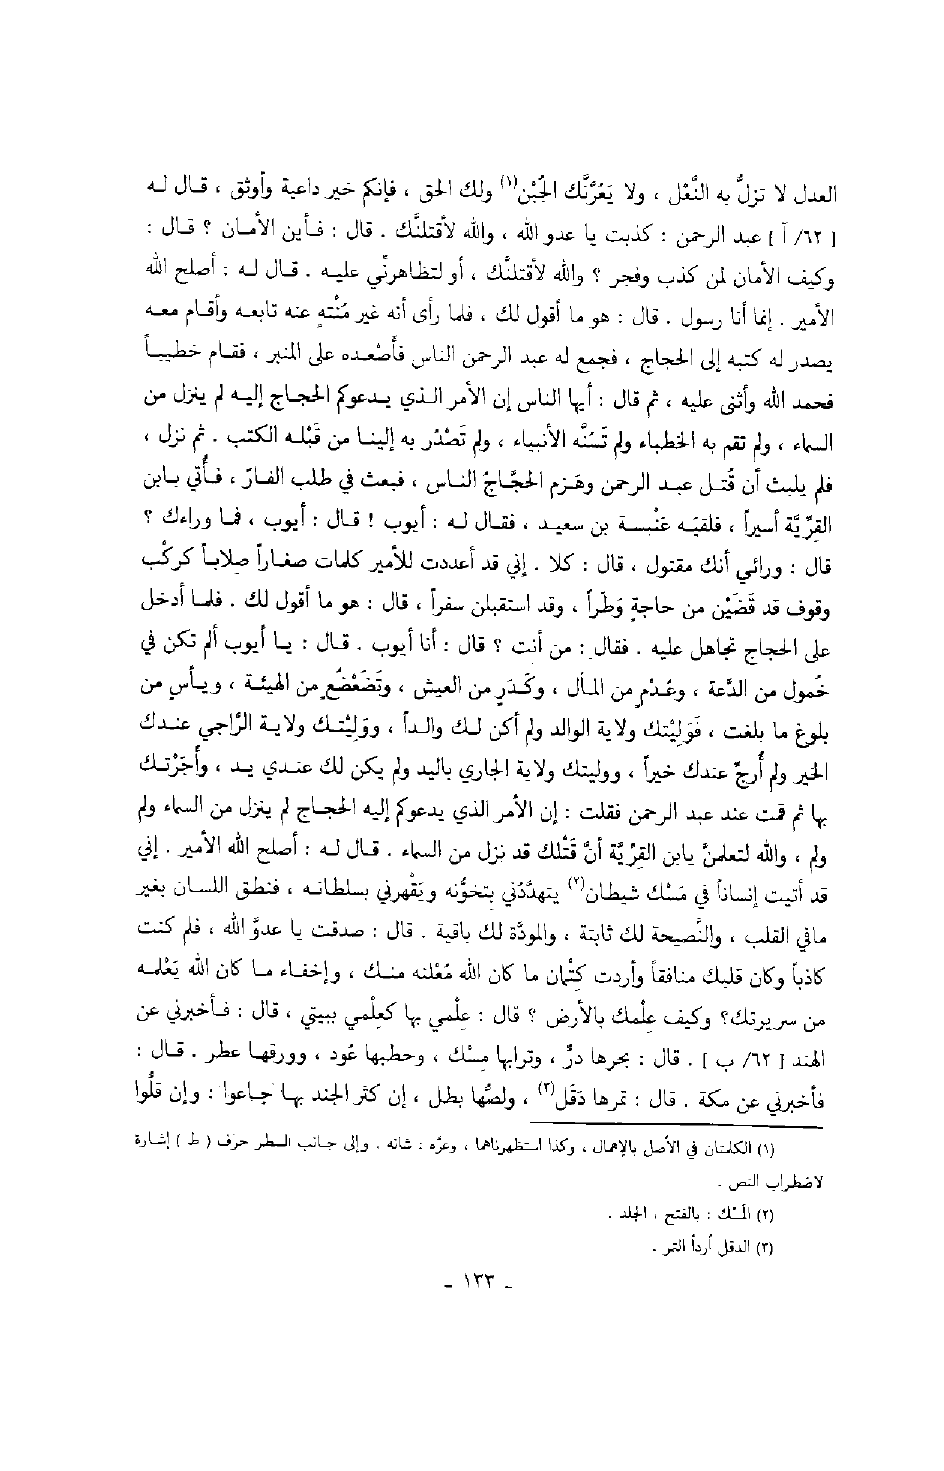 العدل لا تزلُّ به النَّعْل ، ولا يَعُرَّنَّك الجُبْن(١) ولك الحق ، فإنكم خير داعية وأوثق ، قال له
[ ٦٢/ آ ] عبد الرحمن : كذبت يا عدو الله ، والله لأقتلنَّك . قال : فأين الأمان ؟ قال :
وكيف الأمان لمن كذب وفجر ؟ والله لأقتلنَّك ، أو لتظاهرنِّي عليه . قال له : أصلح الله
الأمير . إنما أنا رسول . قال : هو ما أقول لك ، فلما رأى أنه غير مُنْتهٍ عنه تابعه وأقام معه
يصدر له كتبه إلى الحجاج ، فجمع له عبد الرحمن الناس فأصْعده على المنبر ، فقام خطيباً
فحمد الله وأثنى عليه ، ثم قال : أيها الناس إن الأمر الذي يدعوكم الحجاج إليه لم ينزل من
السماء ، ولم تقم به الخطباء ولم تَسُنَّه الأنبياء ، ولم تَصْدُر به إلينا من قَبْله الكتب . ثم نزل ،
فلم يلبث أن قُتل عبد الرحمن وهَزم الحجَّاجُ الناس ، فبعث في طلب الفارّ ، فأُتي بابن
القِرِّيَّة أسيراً ، فلقيَه عَنْبسة بن سعيد ، فقال له : أيوب ! قال : أيوب ، فما وراءك ؟
قال : ورائي أنك مقتول ، قال : كلا . إني قد أعددت للأمير كلمات صغاراً صِلاباً كركْب
وقوف قد قَضَيْن من حاجةٍ وَطَراً ، وقد استقبلن سفراً ، قال : هو ما أقول لك . فلما أدخل
على الحجاج تجاهل عليه . فقال : من أنت ؟ قال : أنا أيوب . قال : يا أيوب ألم تكن في
خُمول من الدَّعة ، وعُدْمٍ من المال ، وكَدَرٍ من العيش ، وتَضَعْضُعٍ من الهيئة ، ويأسٍ من
بلوغ ما بلغت ، فَوَلِيْتك ولاية الوالد ولم أكن لك والداً ، ووَلِيْتك ولاية الرَّاجي عندك
الخير ولم أَرجُ عندك خيراً ، ووليتك ولاية الجاري باليد ولم يكن لك عندي يد ، وأجَرْتك
بها ثم قمت عند عبد الرحمن فقلت : إن الأمر الذي يدعوكم إليه الحجاج لم ينزل من السماء ولم
ولم ، والله لتعلمنَّ يابن القِرِّيَّة أنَّ قَتْلك قد نزل من السماء . قال له : أصلح الله الأمير . إني
قد أتيت إنساناً في مَسْك شيطان(٢) يتهدَّدُني بتخوُّنه ويَقْهرني بسلطانه ، فنطق اللسان بغير
مافي القلب ، والنَّصيحة لك ثابتة ، والمودَّة لك باقية . قال : صدقت يا عدوَّ الله ، فلم كنت
كاذباً وكان قلبك منافقاً وأردت كتْمان ما كان الله مُعْلنه منك ، وإخفاء ما كان الله يَعْلمه
من سريرتك؟ وكيف علمك بالأرض ؟ قال : عِلْمي بها كعِلْمي ببيتي ، قال : فأخبرني عن
الهند [ ٦٢/ ب ] . قال : بحرها درٌّ ، وترابها مِسْك ، وحطبها عُود ، وورقها عطر . قال :
فأخبرني عن مكة . قال : تمرها دَقَل(٣) ، ولصُّها بطل ، إن كثر الجند بها جاعوا ، وإن قلُّوا
(١) الكلمتان في الأصل بالإهمال ، وكذا استظهرناهما ، وعرَّه : شانه . وإلى جانب السطر حرف ( ط ) إشارة
لاضطراب النص .
(٢) المَسْك : بالفتح ، الجلد .
(٣) الدقل أردأ التمر .
ـ ١٣٣ ـ